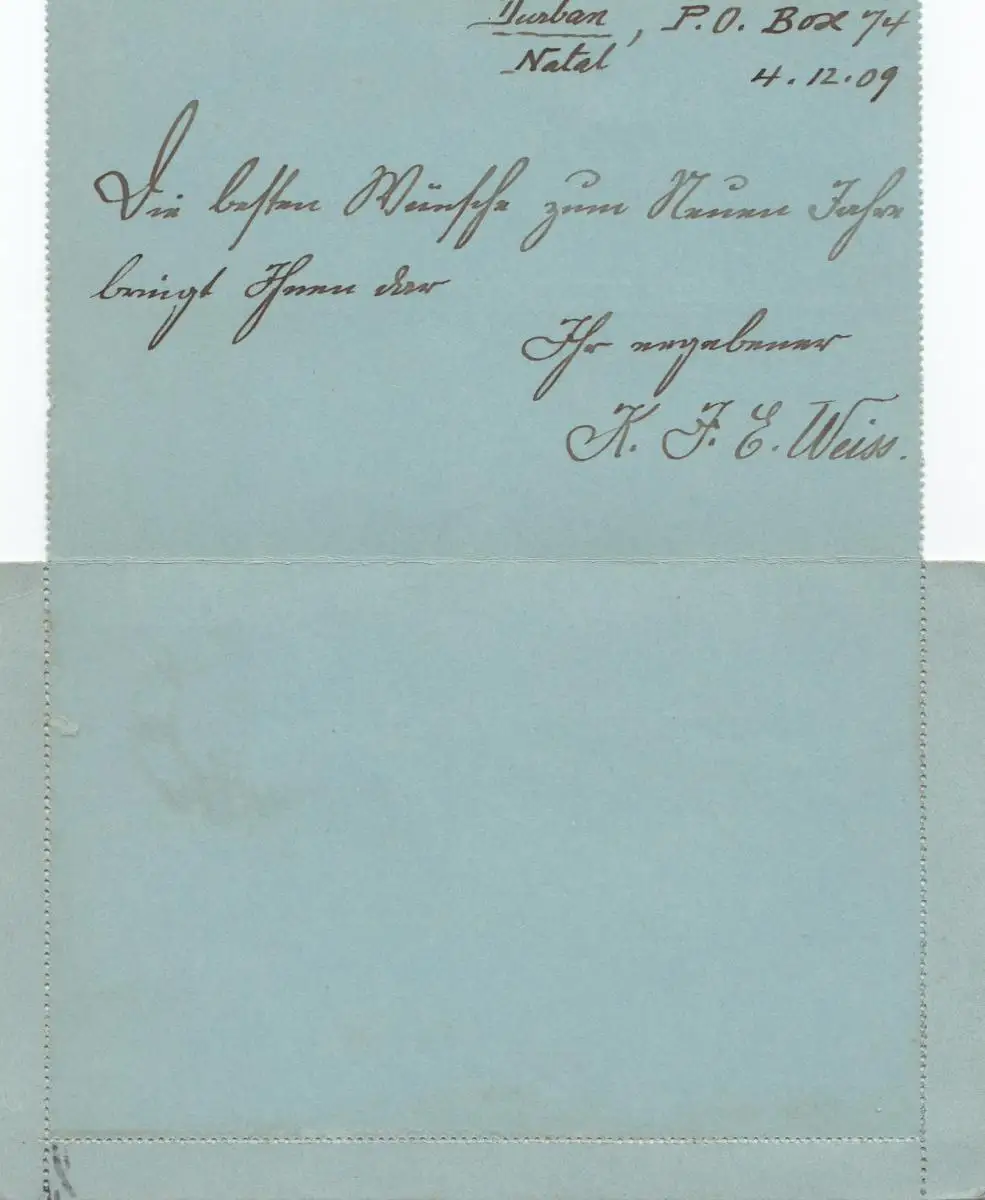 Durban, P.O. Box 74
Natal 4.12.09
Die besten Wünsche zum Neuen Jahre
bringt Ihnen dar
Ihr ergebener
K. F. E. Weiss.